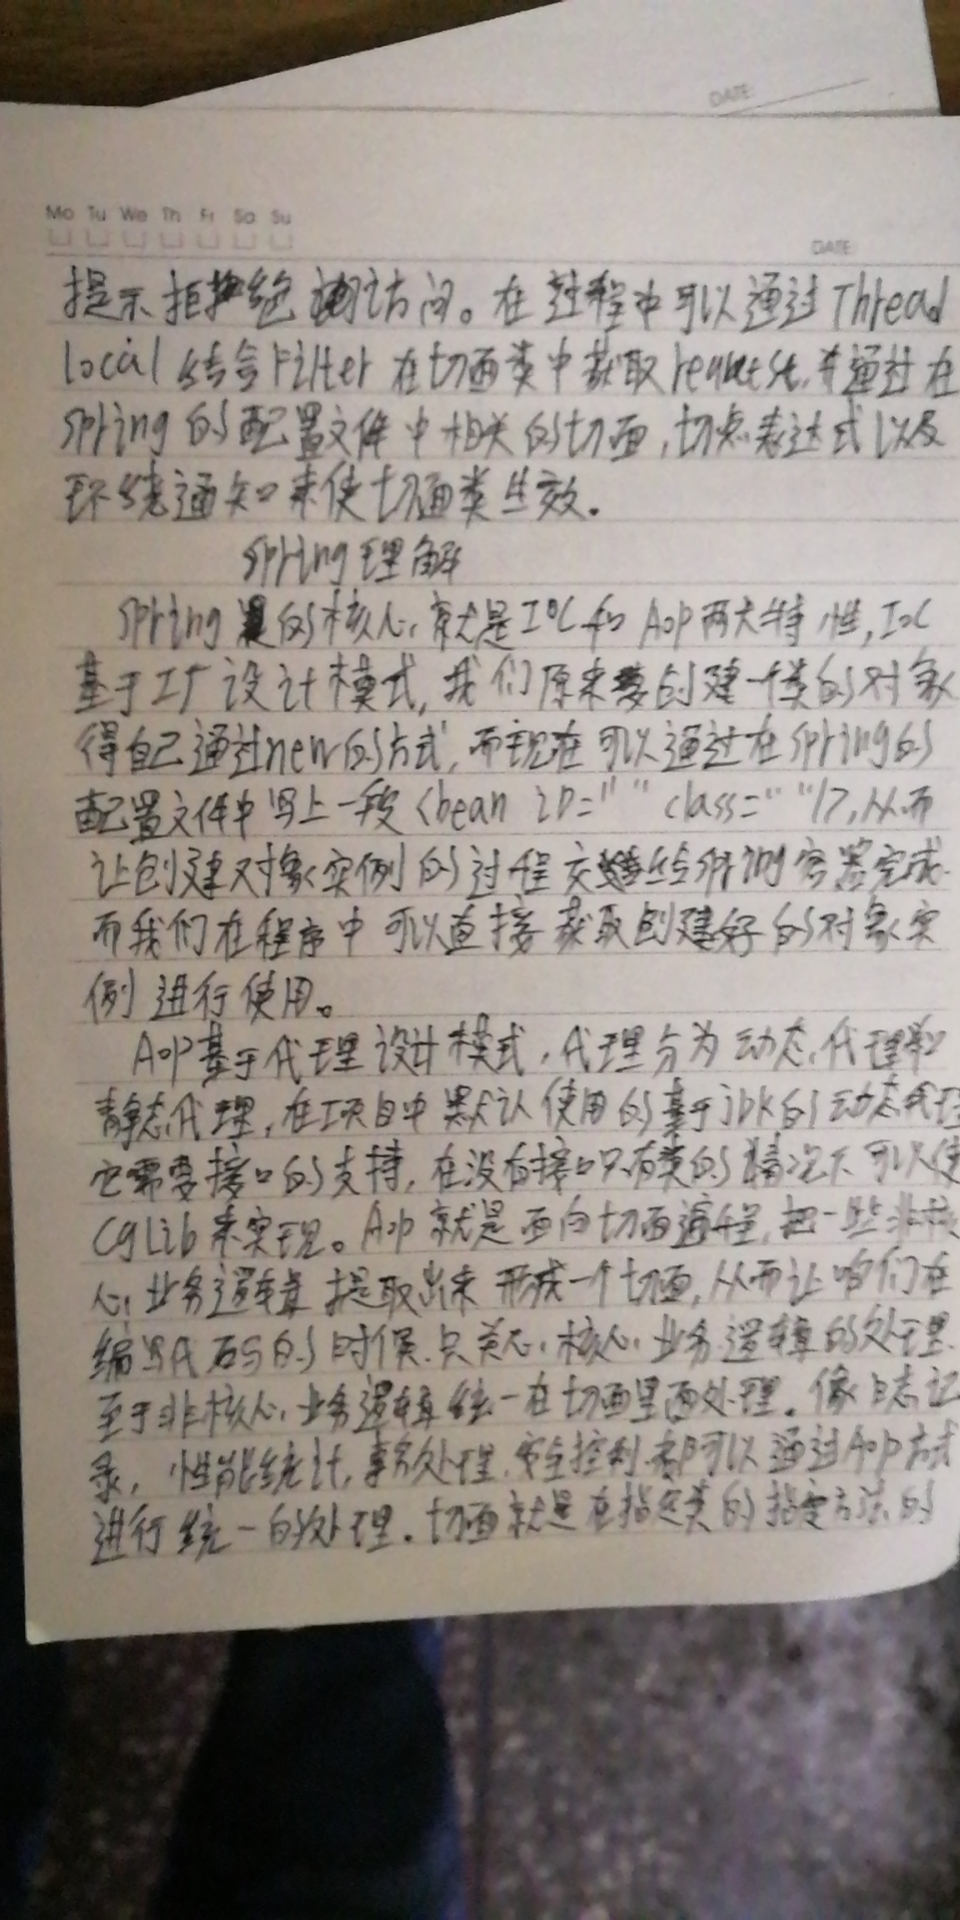 DATE
Mo Tu We Th Fr Sa Su
DATE
提示拒绝访问。在过程中可以通过Thread
local 结合Filter 在切面类中获取request,并通过在
Spring的配置文件中相关的切面,切点表达式以及
环绕通知来使切面类生效。
Spring理解
Spring的核心就是IOC和Aop两大特性,IOC
基于工厂设计模式,我们原来要创建一个类的对象
得自己通过new的方式,而现在可以通过在spring的
配置文件中写上一段<bean ID=" " class=" "/>,从而
让创建对象实例的过程交给spring容器完成.
而我们在程序中可以直接获取创建好的对象实
例进行使用。
Aop基于代理设计模式,代理分为动态代理和
静态代理,在项目中默认使用的基于jDK的动态代理
它需要接口的支持,在没有接口只有类的情况下可以使
CgLib来实现。Aop就是面向切面编程,把一些非核
心业务逻辑提取出来形成一个切面,从而让咱们在
编写代码的时候.只关心核心业务逻辑的处理.
至于非核心业务逻辑统一在切面里面处理.像日志记
录,性能统计,事务处理,安全控制都可以通过Aop方式
进行统一的处理.切面就是在指定类的指定方法的